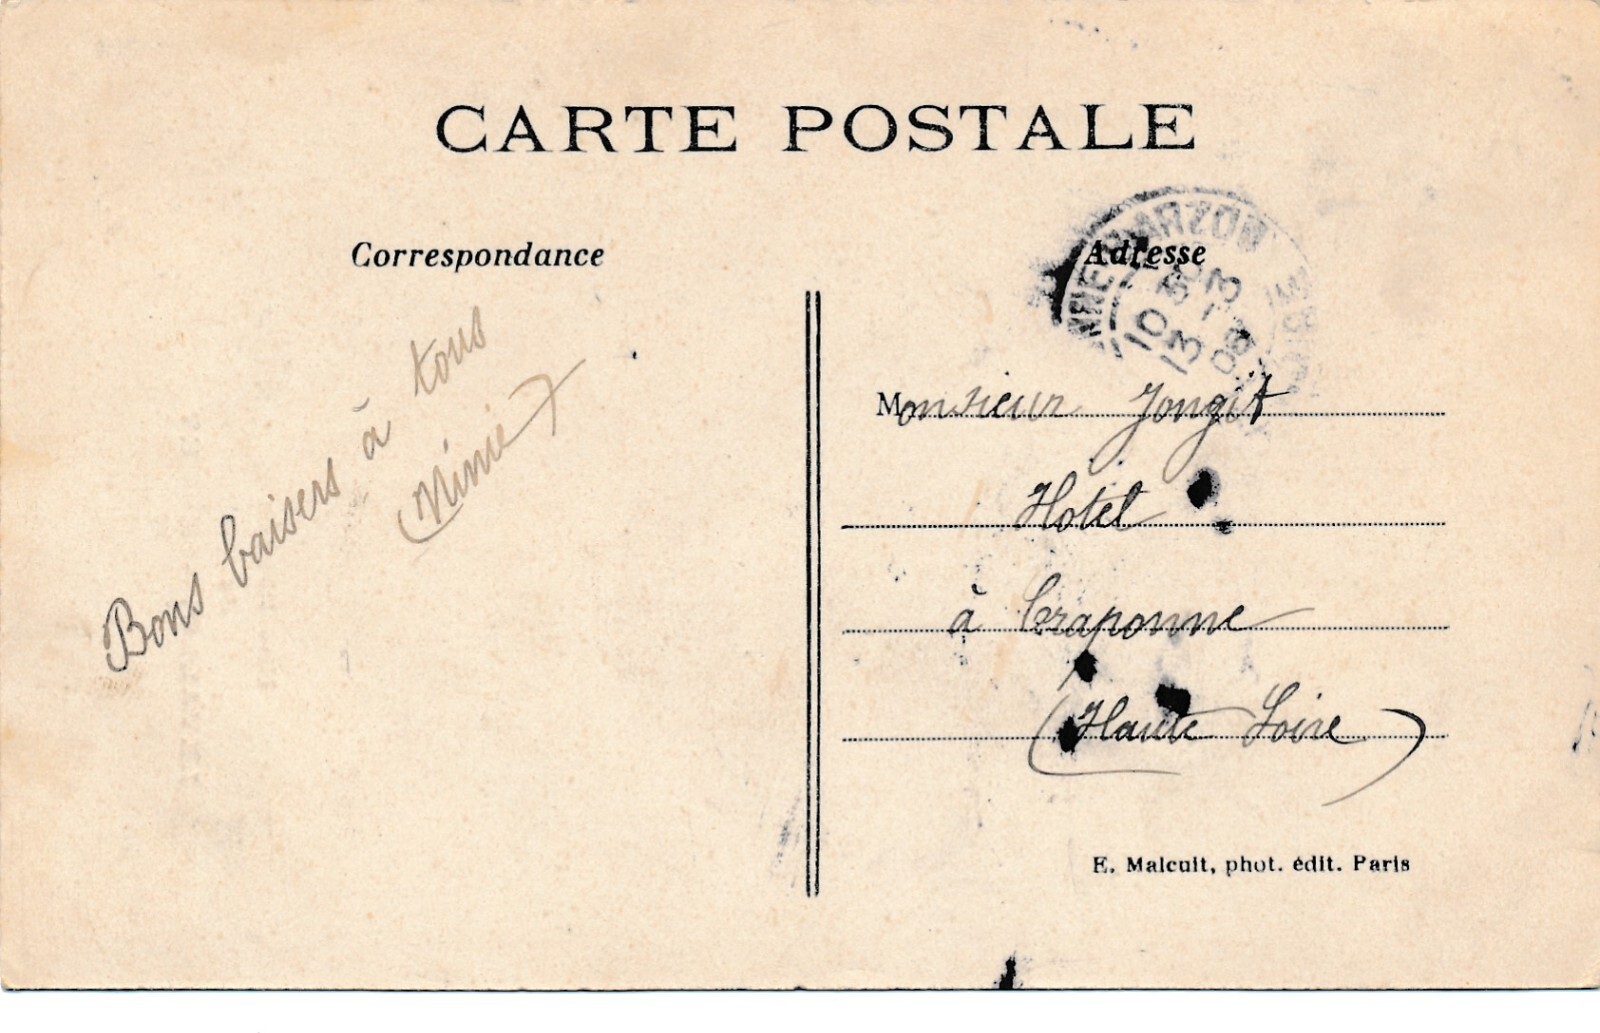 CARTE POSTALE
Correspondance
Adresse
Bons baisers à tous
Mimie
10 50
13 - 3
09
Monsieur Jongit
Hotel
à Craponne
(Haute Loire)
E. Malcuit, phot. édit. Paris